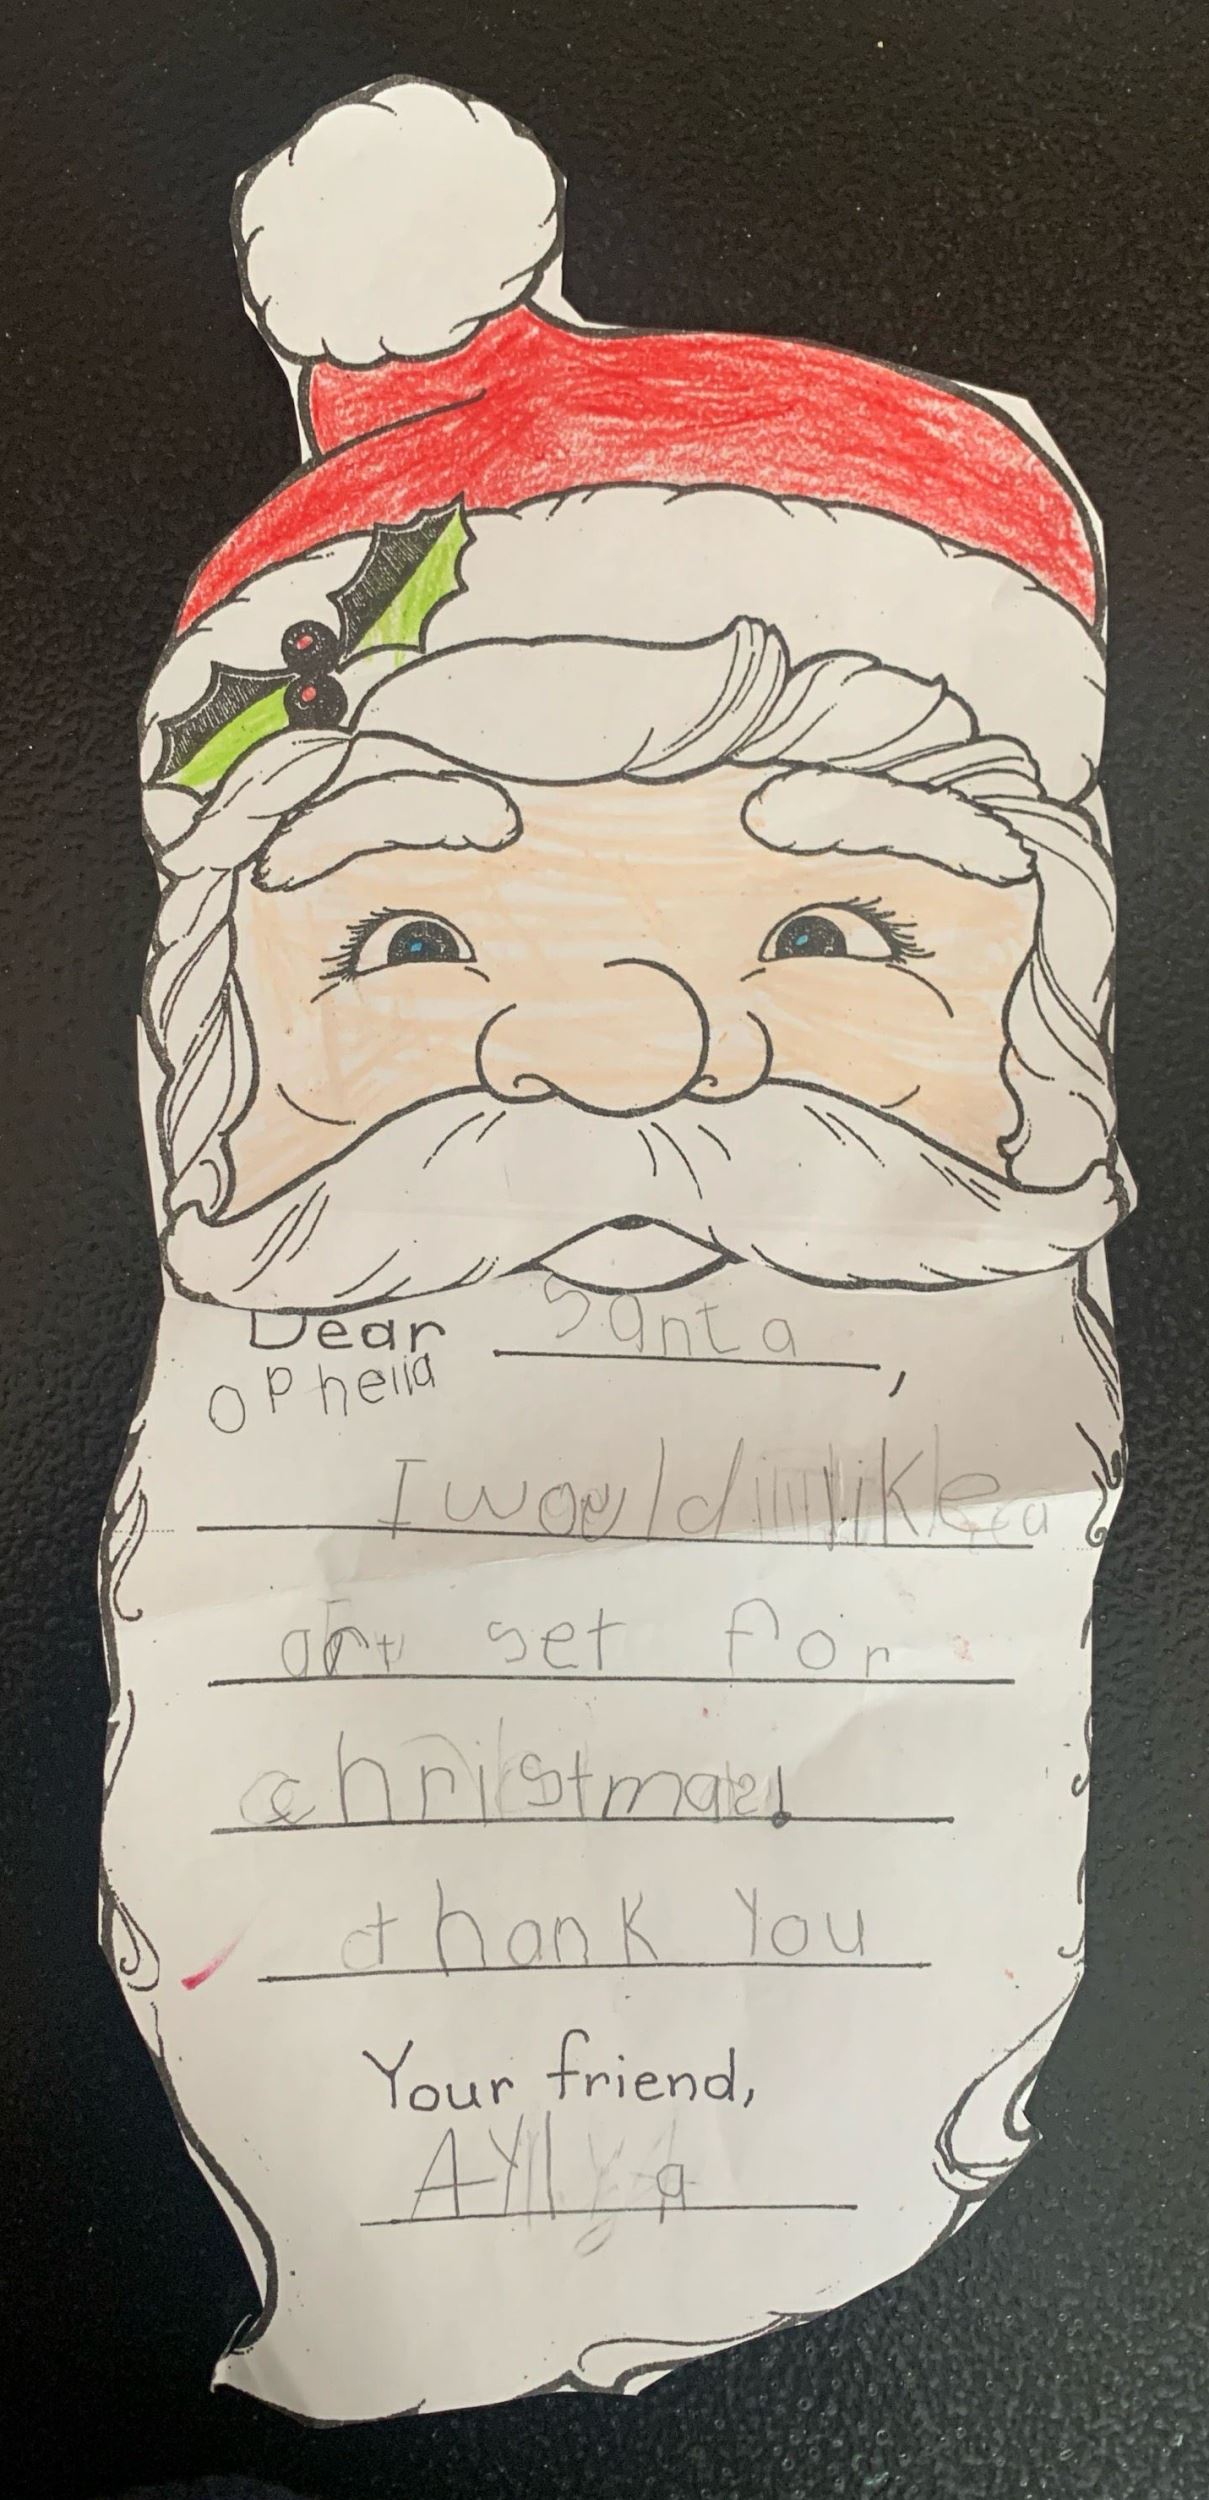 Dear Santa,
OPhelia
I would like a
art set for
christmas!
thank You
Your friend,